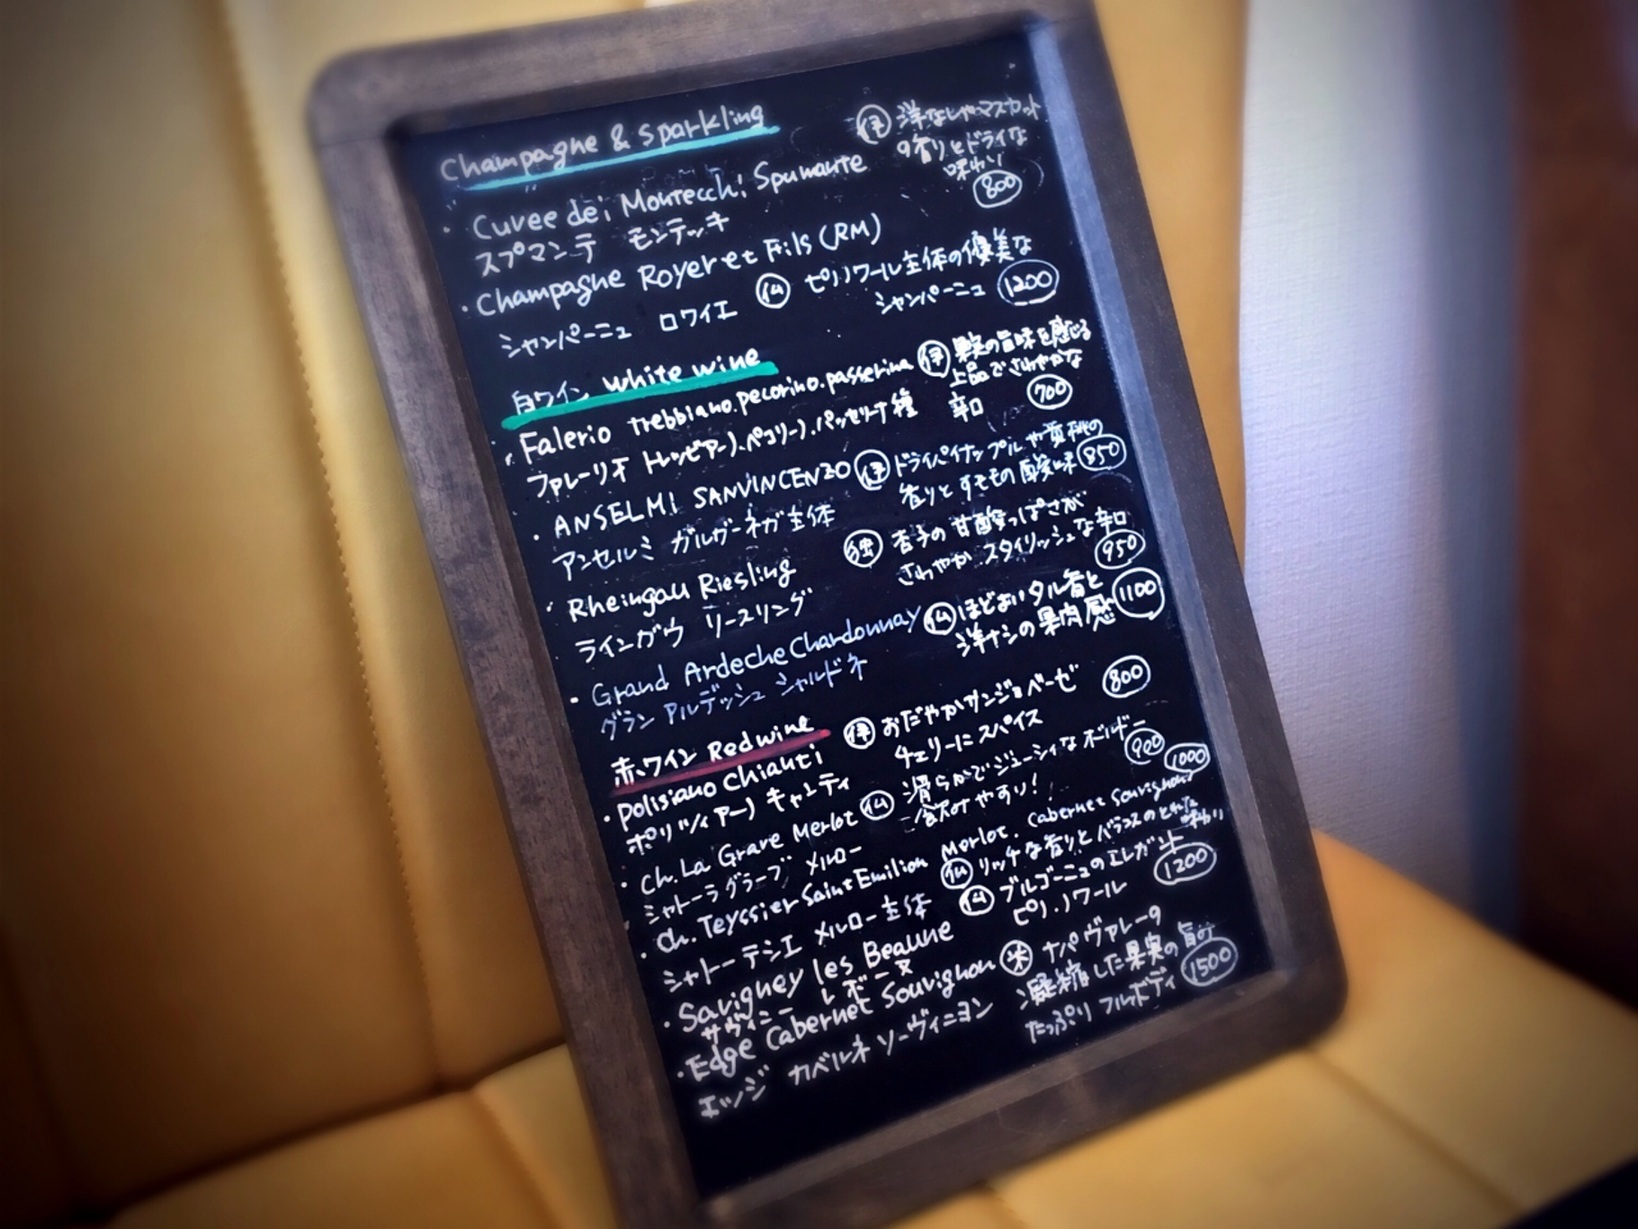 Champagne & Sparkling
・Cuvee dei Montecchi Spumante
スプマンテ モンテッキ
伊 洋なしやマスカット
の香りとドライな
味わい
800
・Champagne Royer et Fils (RM)
シャンパーニュ ロワイエ
仏 ピノノワール主体の優美な
シャンパーニュ 1200
白ワイン White wine
・Falerio trebbiano.pecorino.passerina
ファレーリオ トレッビアーノ.ペコリーノ.パッセリーナ種
伊 果実の旨味を感じる
上品でさわやかな
辛口 700
・ANSELMI SANVINCENZO
アンセルミ ガルガーネガ主体
伊 ドライパイナップルや黄桃の
香りとすももの酸味 850
・Rheingau Riesling
ラインガウ リースリング
独 杏子の甘酸っぱさが
さわやか スタイリッシュな辛口
950
・Grand Ardeche Chardonnay
グラン アルデッシュ シャルドネ
仏 ほどよいタル香と
洋ナシの果肉感 1100
赤ワイン Red wine
・Polisiano Chianti
ポリツィアーノ キャンティ
伊 おだやかサンジョベーゼ
チェリーにスパイス
800
・Ch. La Grave Merlot
シャトーラグラーブ メルロー
仏 滑らかでジューシィなボルドー
飲みやすい! 900
・Ch. Teyssier Saint Emilion Merlot. Cabernet Sauvignon 1000
シャトーテシエ メルロー主体
仏 リッチな香りとバランスのとれた味わい
・Savigney les Beaune
サヴィニー レ ボーヌ
仏 ブルゴーニュのエレガント
ピノ.ノワール 1200
・Edge Cabernet Souvignon
エッジ カベルネ ソーヴィニヨン
米 ナパヴァレーの
凝縮した果実の旨み
たっぷり フルボディ 1500